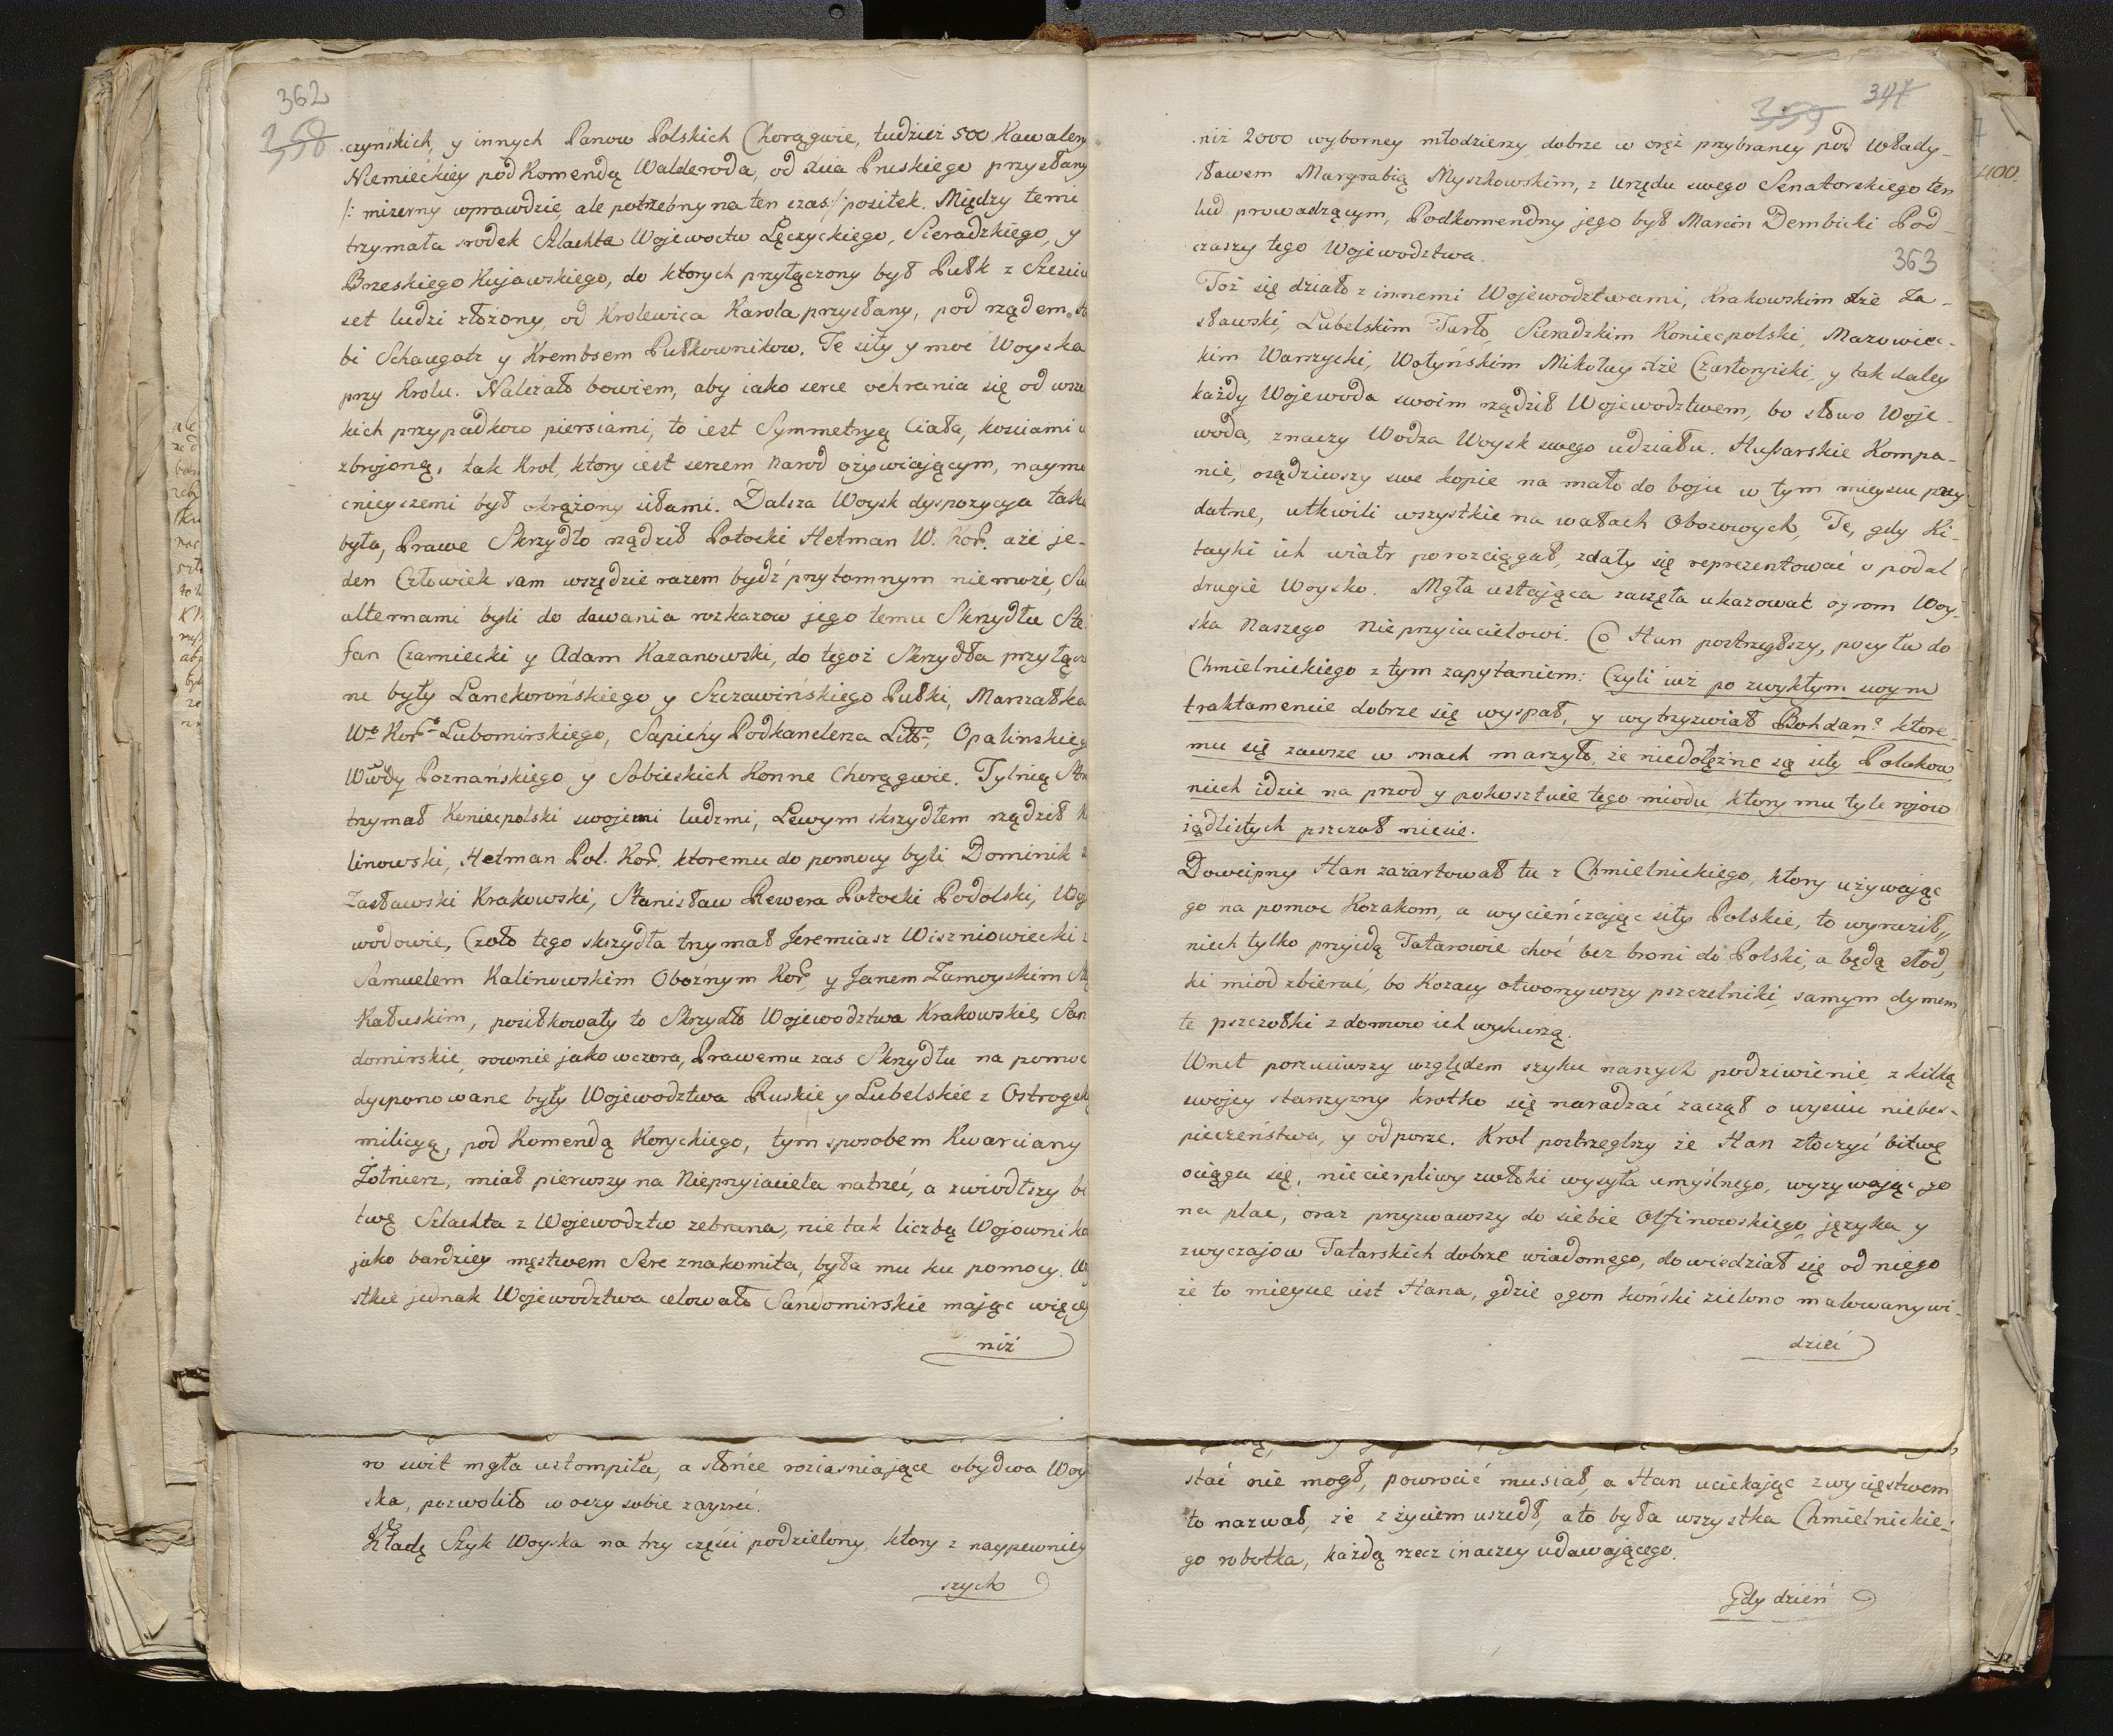 362
358
czyńskich, y innych Panow Polskich Chorągwie, tudzież 500 Kawalery
Niemieckiey pod Komendą Walderoda, od Xcia Pruskiego przysłany
/: mizerny wprawdzie, ale potrzebny na ten czas :/ posiłek. Między temi
trzymała srodek Szlachta Wojewoctw Łęczyckiego, Sieradzkiego, y
Brzeskiego Kujawskiego, do ktorych przyłączony był Pułk z Sześciu
set ludzi złożony, od Krolewica Karola przysłany, pod rządem
bi Schaugotz y Krembsem Pułkownikow. Te siły y moc Woyska
przy Krolu. Należało bowiem, aby iako serce ochrania się od wsze
kich przypadkow piersiami, to iest Symmetryą Ciała, kosciami u
zbrojoną, tak Krol, ktory iest sercem Narod ożywiaiącym, naymo
cnieyszemi był okrążony siłami. Dalsza Woysk dyspozycya taka
była, Prawe Skrzydło rządził Potocki Hetman W. Kor. aże je-
den Człowiek sam wszędzie razem bydź przytomnym niemoże, Su
alternami byli do dawania rozkazow jego temu Skrzydłu Ste
fan Czarniecki y Adam Kazanowski, do tegoż Skrzydła przyłącz
ne były Lanckorońskiego y Szczawińskiego Pułki, Marszałka
Wo Koro Lubomirskiego, Sapiehy Podkanclerza Litto, Opalinskieg
Wwdy Poznańskiego y Sobieskich Konne Chorągwie. Tylnią Str
trzymał Koniecpolski swojemi ludzmi, Lewym skrzydłem rządził K
linowski, Hetman Pol. Kor. ktoremu do pomocy byli Dominik
Zasławski Krakowski, Stanisław Rewera Potocki Podolski, Woy
wodowie, Czoło tego skrzydła trzymał Jeremiasz Wiszniowiecki z
Samuelem Kalinowskim Oboźnym Kor. y Janem Zamoyskim Sta
Kałuskim, posiłkowały to Skrzydło Wojewodztwa Krakowskie, San
domirskie, rownie jako wczora, Prawemu zas Skrzydłu na pomoc
dysponowane były Wojewodztwa Ruskie y Lubelskie z Ostrogsk
milicyą, pod Komendą Koryckiego, tym sposobem Kwarciany
Żołnierz, miał pierwszy na Nieprzyiaciela natrzeć, a zwiodłszy bi
twę Szlachta z Wojewodztw zebrana, nie tak liczbą Wojownika
jako bardziey męstwem Serc znakomita, była mu ku pomocy. W
stkie jednak Wojewodztwa celowało Sandomirskie mając więcey
niż
ro swit mgła ustompiła, a słońce roziasniające obydwa Woy
ska, pozwoliło w oczy sobie zayzreć.
Kładę Szyk Woyska na trzy części podzielony, ktory z naypewniey
szych
347
359
niż 2000 wyborney młodzieży dobrze w oręż przybraney pod Włady-
sławem Margrabią Myszkowskim, z Urzędu swego Senatorskiego ten
lud prowadzącym, Podkomendny jego był Marcin Dembicki Pod-
czaszy tego Wojewodztwa.
363
Toż się działo z innemi Wojewodztwami, Krakowskim Xże Za-
sławski, Lubelskim Tarło, Sieradzkim Koniecpolski, Mazowiec-
kim Warszycki, Wołyńskim Mikołay Xże Czartoryiski, y tak daley
każdy Wojewoda swoim rządził Wojewodztwem, bo słowo Woje-
woda, znaczy Wodza Woysk swego udziału. Hussarskie Kompa-
nie, osądziwszy swe kopie na mało do boju w tym mieyscu przy
datne, utkwili wszystkie na wałach Obozowych, Te, gdy Ki-
tayki ich wiatr porozciągał, zdały się reprezentować o podal
drugie Woysko. Mgła ustająca zaczęła ukazować ogrom Woy-
ska Naszego Nieprzyiacielowi. Co Han postrzegłszy, posyła do
Chmielnickiego z tym zapytaniem: Czyli iuż po zwykłym swym
traktamencie dobrze się wyspał, y wytrzyzwiał Bohdan? ktore-
mu się zawsze w snach marzyło, że niedołężne są siły Polakow
niech idzie na przod y pokosztuie tego miodu, ktory mu tyle rojow
żądlistych pszczoł niesie.
Dowcipny Han zażartował tu z Chmielnickiego, ktory używając
go na pomoc Kozakom, a wycieńczając siły Polskie, to wyraził,,
niech tylko przyidą Tatarowie choć bez broni do Polski, a będą słod,
ki miod zbierać, bo Kozacy otworzywszy pszczelniki, samym dymem
te pszczołki z domow ich wykurzą.
Wnet porzuciwszy względem szyku naszych podziwienie, z kilką
swojey starszyzny krotko się naradzać zaczął o uyściu niebes-
pieczeństwa, y odporze. Krol postrzegłszy że Han złoczyć bitwę
ociąga się, niecierpliwy zwłoki wysyła umyślnego, wyzywając go
na plac, oraz przyzwawszy do siebie Otfinowskiego języka y
zwyczajow Tatarskich dobrze wiadomego, dowiedział się od niego
że to mieysce iest Hana, gdzie ogon koński zielono malowany wi-
dzieć
stać nie mogł, powrocić musiał, a Han uciekając zwycięstwem
to nazwał, że z życiem uszedł, a to była wszystka Chmielnickie-
go robotka, każdą rzecz inaczey udawającego.
Gdy dzień
400.